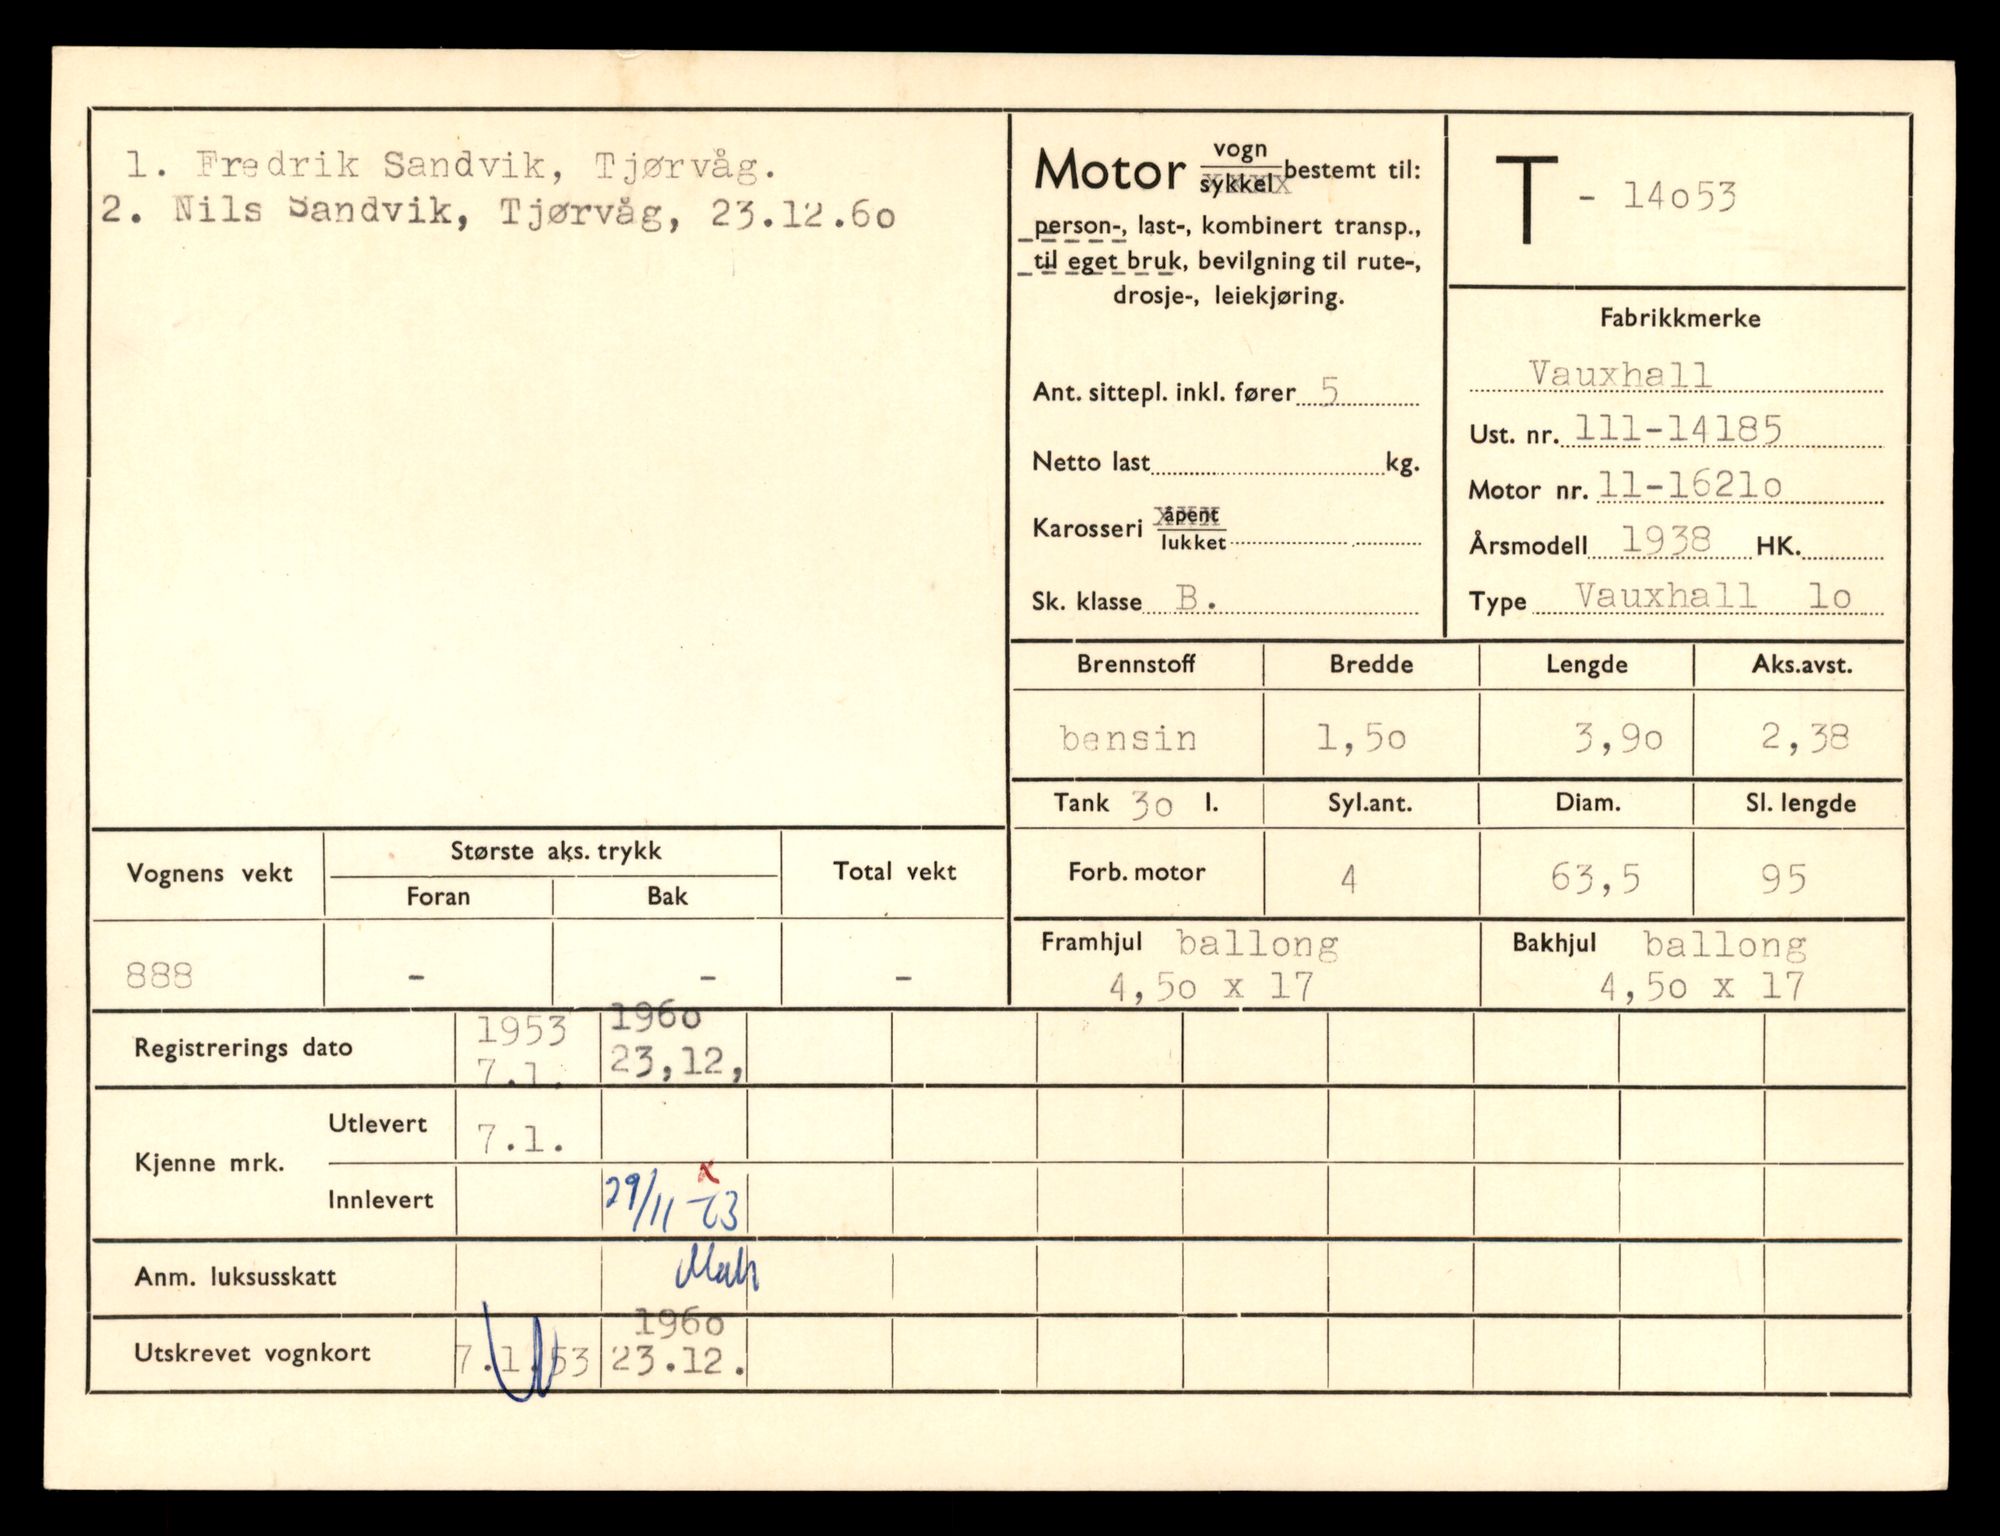 1. Fredrik Sandvik, Tjørvåg.
2. Nils Sandvik, Tjørvåg, 23.12.6o
Motor vogn
sykkel bestemt til:
person-, last-, kombinert transp.,
til eget bruk, bevilgning til rute-,
drosje-, leiekjøring.
Ant. sittepl. inkl. fører 5
Netto last kg.
Karosseri åpent
lukket
Sk. klasse B.
T - 14o53
Fabrikkmerke
Vauxhall
Ust. nr. 111-14185
Motor nr. 11-1621o
Årsmodell 1938 HK.
Type Vauxhall 1o
Brennstoff Bredde Lengde Aks.avst.
bensin 1,5o 3,9o 2,38
Tank 3o l. Syl.ant. Diam. Sl. lengde
Forb. motor 4 63,5 95
Framhjul ballong
4,5o x 17
Bakhjul ballong
4,5o x 17
Vognens vekt Største aks. trykk Total vekt
Foran Bak
888 - - -
Registrerings dato 1953 196o
7.1. 23,12,
Kjenne mrk. Utlevert 7.1.
Innlevert 29/11 x
Anm. luksusskatt
196o
Utskrevet vognkort 7.1.53 23.12.